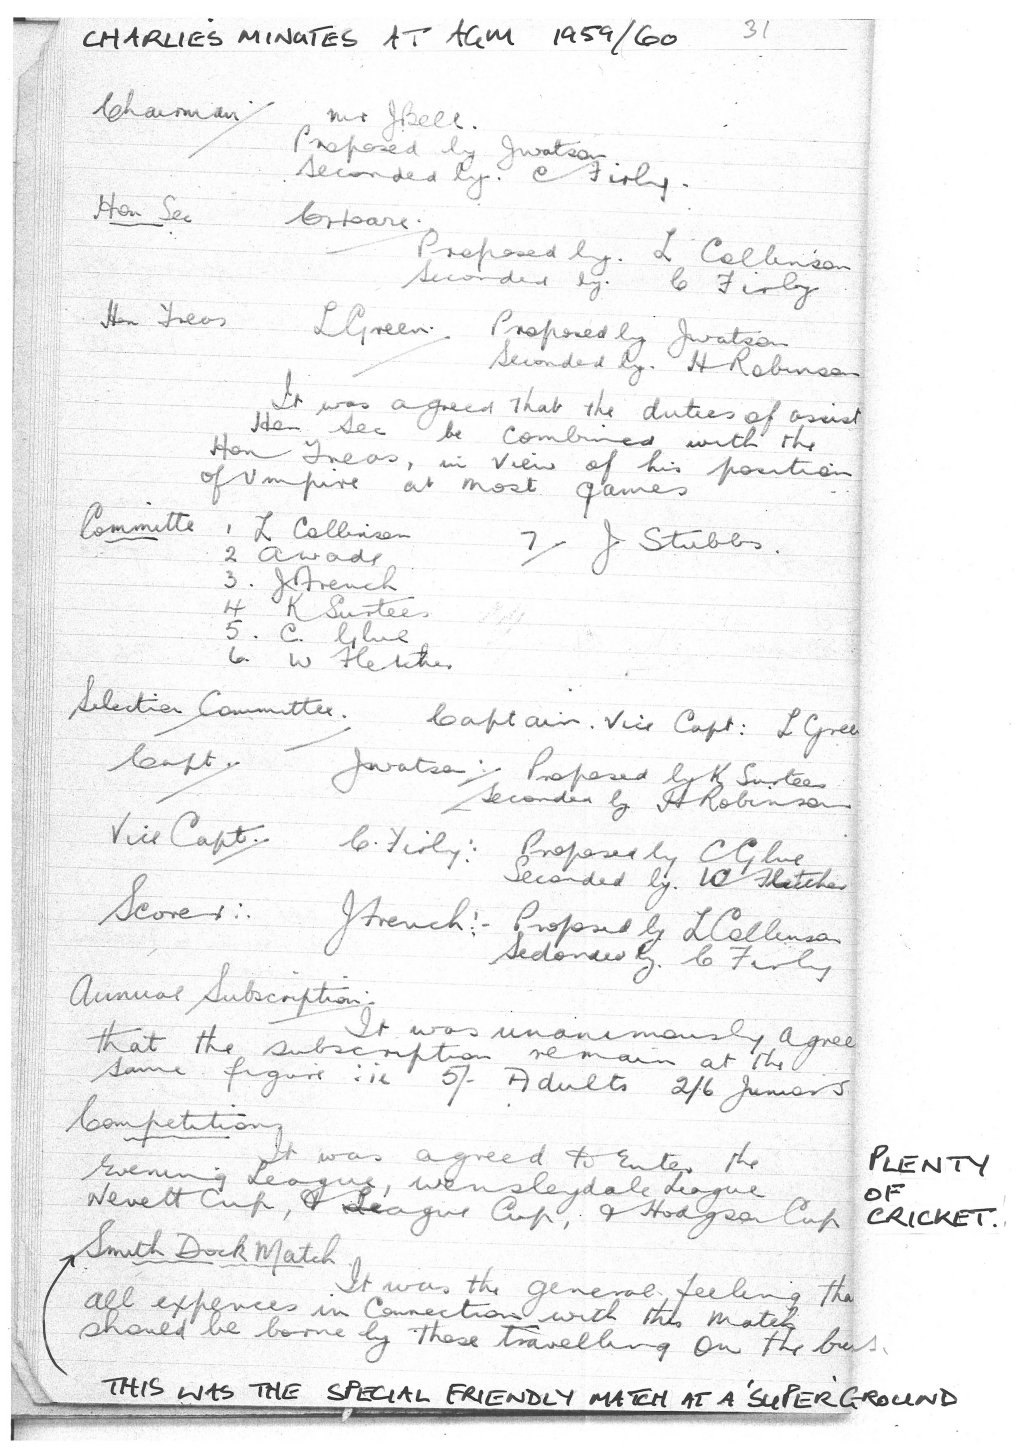 CHARLIE'S MINUTES AT AGM 1959/60 31
Chairman Mr J Bell.
Proposed by J Watson
Seconded by. C Firby.
Hon Sec C Hoare.
Proposed by. L Collinson
Seconded by. C Firby
Hon Treas L Green. Proposed by J Watson
Seconded by. H Robinson
It was agreed that the duties of assist
Hon Sec be combined with the
Hon Treas, in view of his position
of Umpire at most games
Committe 1 L Collinson 7/ J Stubbs.
2 A Wade
3. J French
4 K Surtees
5. C. Glue
6. W Fletcher
Selection Committee. Captain. Vice Capt: L Green
Capt. J Watson:- Proposed by K Surtees
Seconded by H Robinson
Vice Capt. C. Firby: Proposed by C Glue
Seconded by. W Fletcher
Scorer:. J French:- Proposed by L Collinson
Seconded by. C Firby
Annual Subscription:-
It was unanimously agree
that the subscription remain at the
same figure :ie 5/- Adults 2/6 Juniors
Competitions
It was agreed to Enter the
Evening League, Wensleydale League
Nevett Cup, & League Cup, & Hodgson Cup
PLENTY
OF
CRICKET.
Smith Dock Match
It was the general feeling tha
all expences in Connection with this Match
should be borne by those travelling on the bus.
THIS WAS THE SPECIAL FRIENDLY MATCH AT A 'SUPER' GROUND